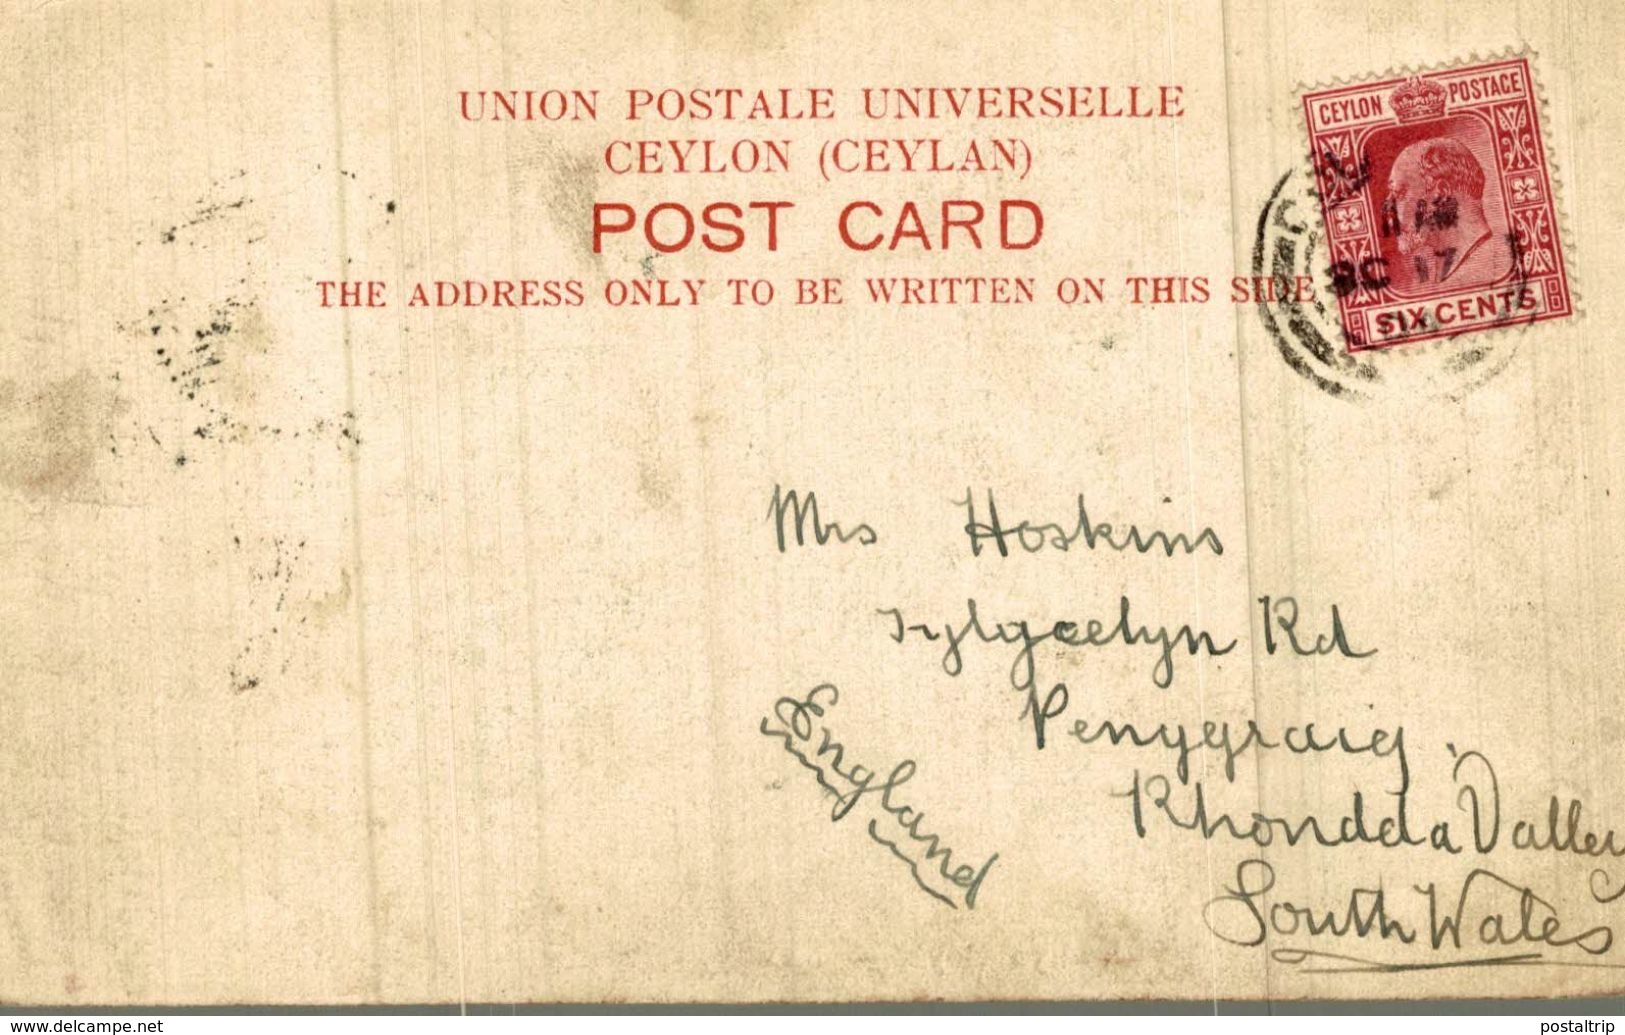 UNION POSTALE UNIVERSELLE
CEYLON (CEYLAN)
POST CARD
THE ADDRESS ONLY TO BE WRITTEN ON THIS SIDE
CEYLON POSTAGE
SIX CENTS
11 AM
17
Mrs Hoskins
Rd
Penygraig,
Rhondda Valley
South Wales
England
www.delcampe.net
postaltrip